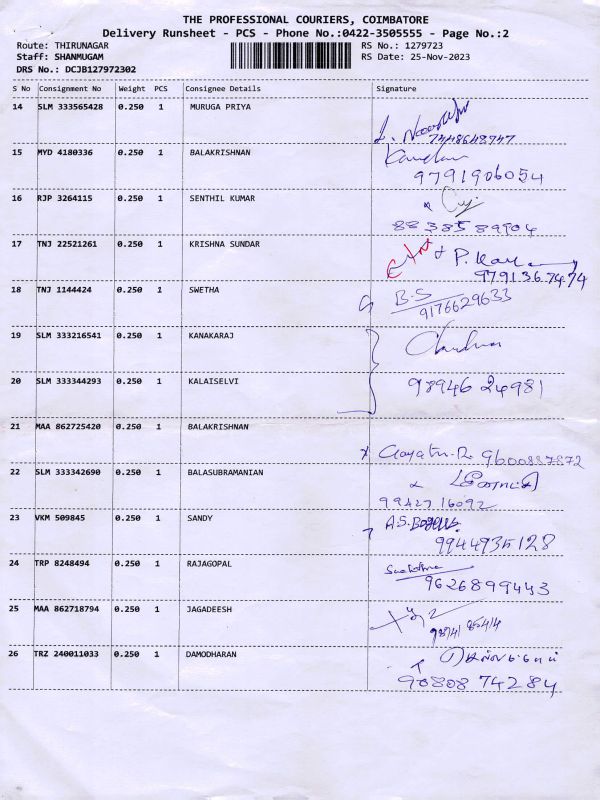 THE PROFESSIONAL COURIERS, COIMBATORE
Delivery Runsheet - PCS - Phone No.:0422-3505555 - Page No.:2
Route: THIRUNAGAR RS No.: 1279723
Staff: SHANMUGAM RS Date: 25-Nov-2023
DRS No.: DCJB127972302
S No Consignment No Weight PCS Consignee Details Signature
14 SLM 333565428 0.250 1 MURUGA PRIYA
7448648747
15 MYD 4180336 0.250 1 BALAKRISHNAN
9791906054
16 RJP 3264115 0.250 1 SENTHIL KUMAR
88 385 89904
17 TNJ 22521261 0.250 1 KRISHNA SUNDAR
9791367474
18 TNJ 1144424 0.250 1 SWETHA B.S
9176629633
19 SLM 333216541 0.250 1 KANAKARAJ
20 SLM 333344293 0.250 1 KALAISELVI 98946 24981
21 MAA 862725420 0.250 1 BALAKRISHNAN
Gayatri.R. 9600887872
22 SLM 333342690 0.250 1 BALASUBRAMANIAN
99427 16092
23 VKM 509845 0.250 1 SANDY
9944935128
24 TRP 8248494 0.250 1 RAJAGOPAL
9626899443
25 MAA 862718794 0.250 1 JAGADEESH
26 TRZ 240011033 0.250 1 DAMODHARAN
90808 74284